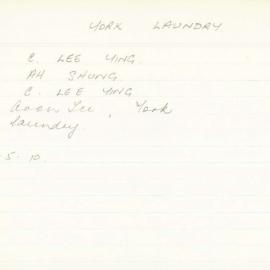 YORK LAUNDRY
C. LEE YING.
AH SHUNG.
C. LEE YING
Lee, York
Laundry.
5. 10.